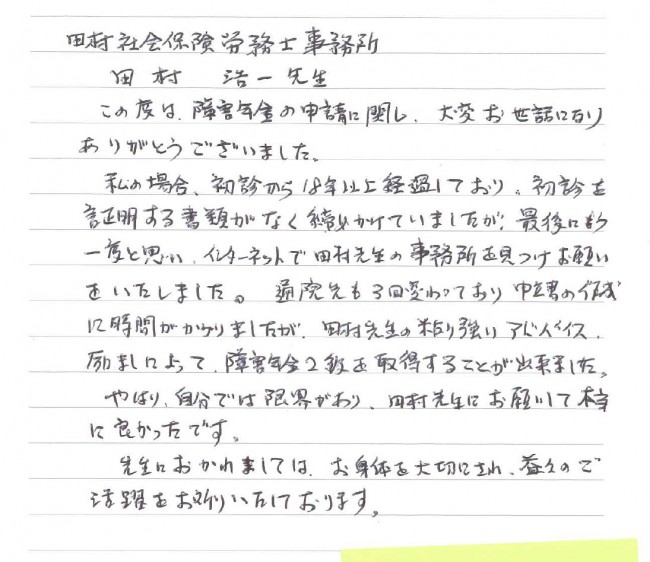 田村社会保険労務士事務所
田村 浩一先生
この度は、障害年金の申請に関し、大変お世話になり
ありがとうございました。
私の場合、初診から18年以上経過しており。初診を
証明する書類がなく諦めかけていましたが、最後にもう
一度と思い、インターネットで田村先生の事務所を見つけお願い
をいたしました。 通院先も3回変わっており申立書の作成
に時間がかかりましたが、田村先生の粘り強いアドバイス、
励ましによって、障害年金2級を取得することが出来ました。
やはり、自分では限界があり、田村先生にお願いして本当
に良かったです。
先生におかれましては、お身体を大切にされ、益々のご
活躍をお祈りいたしております。